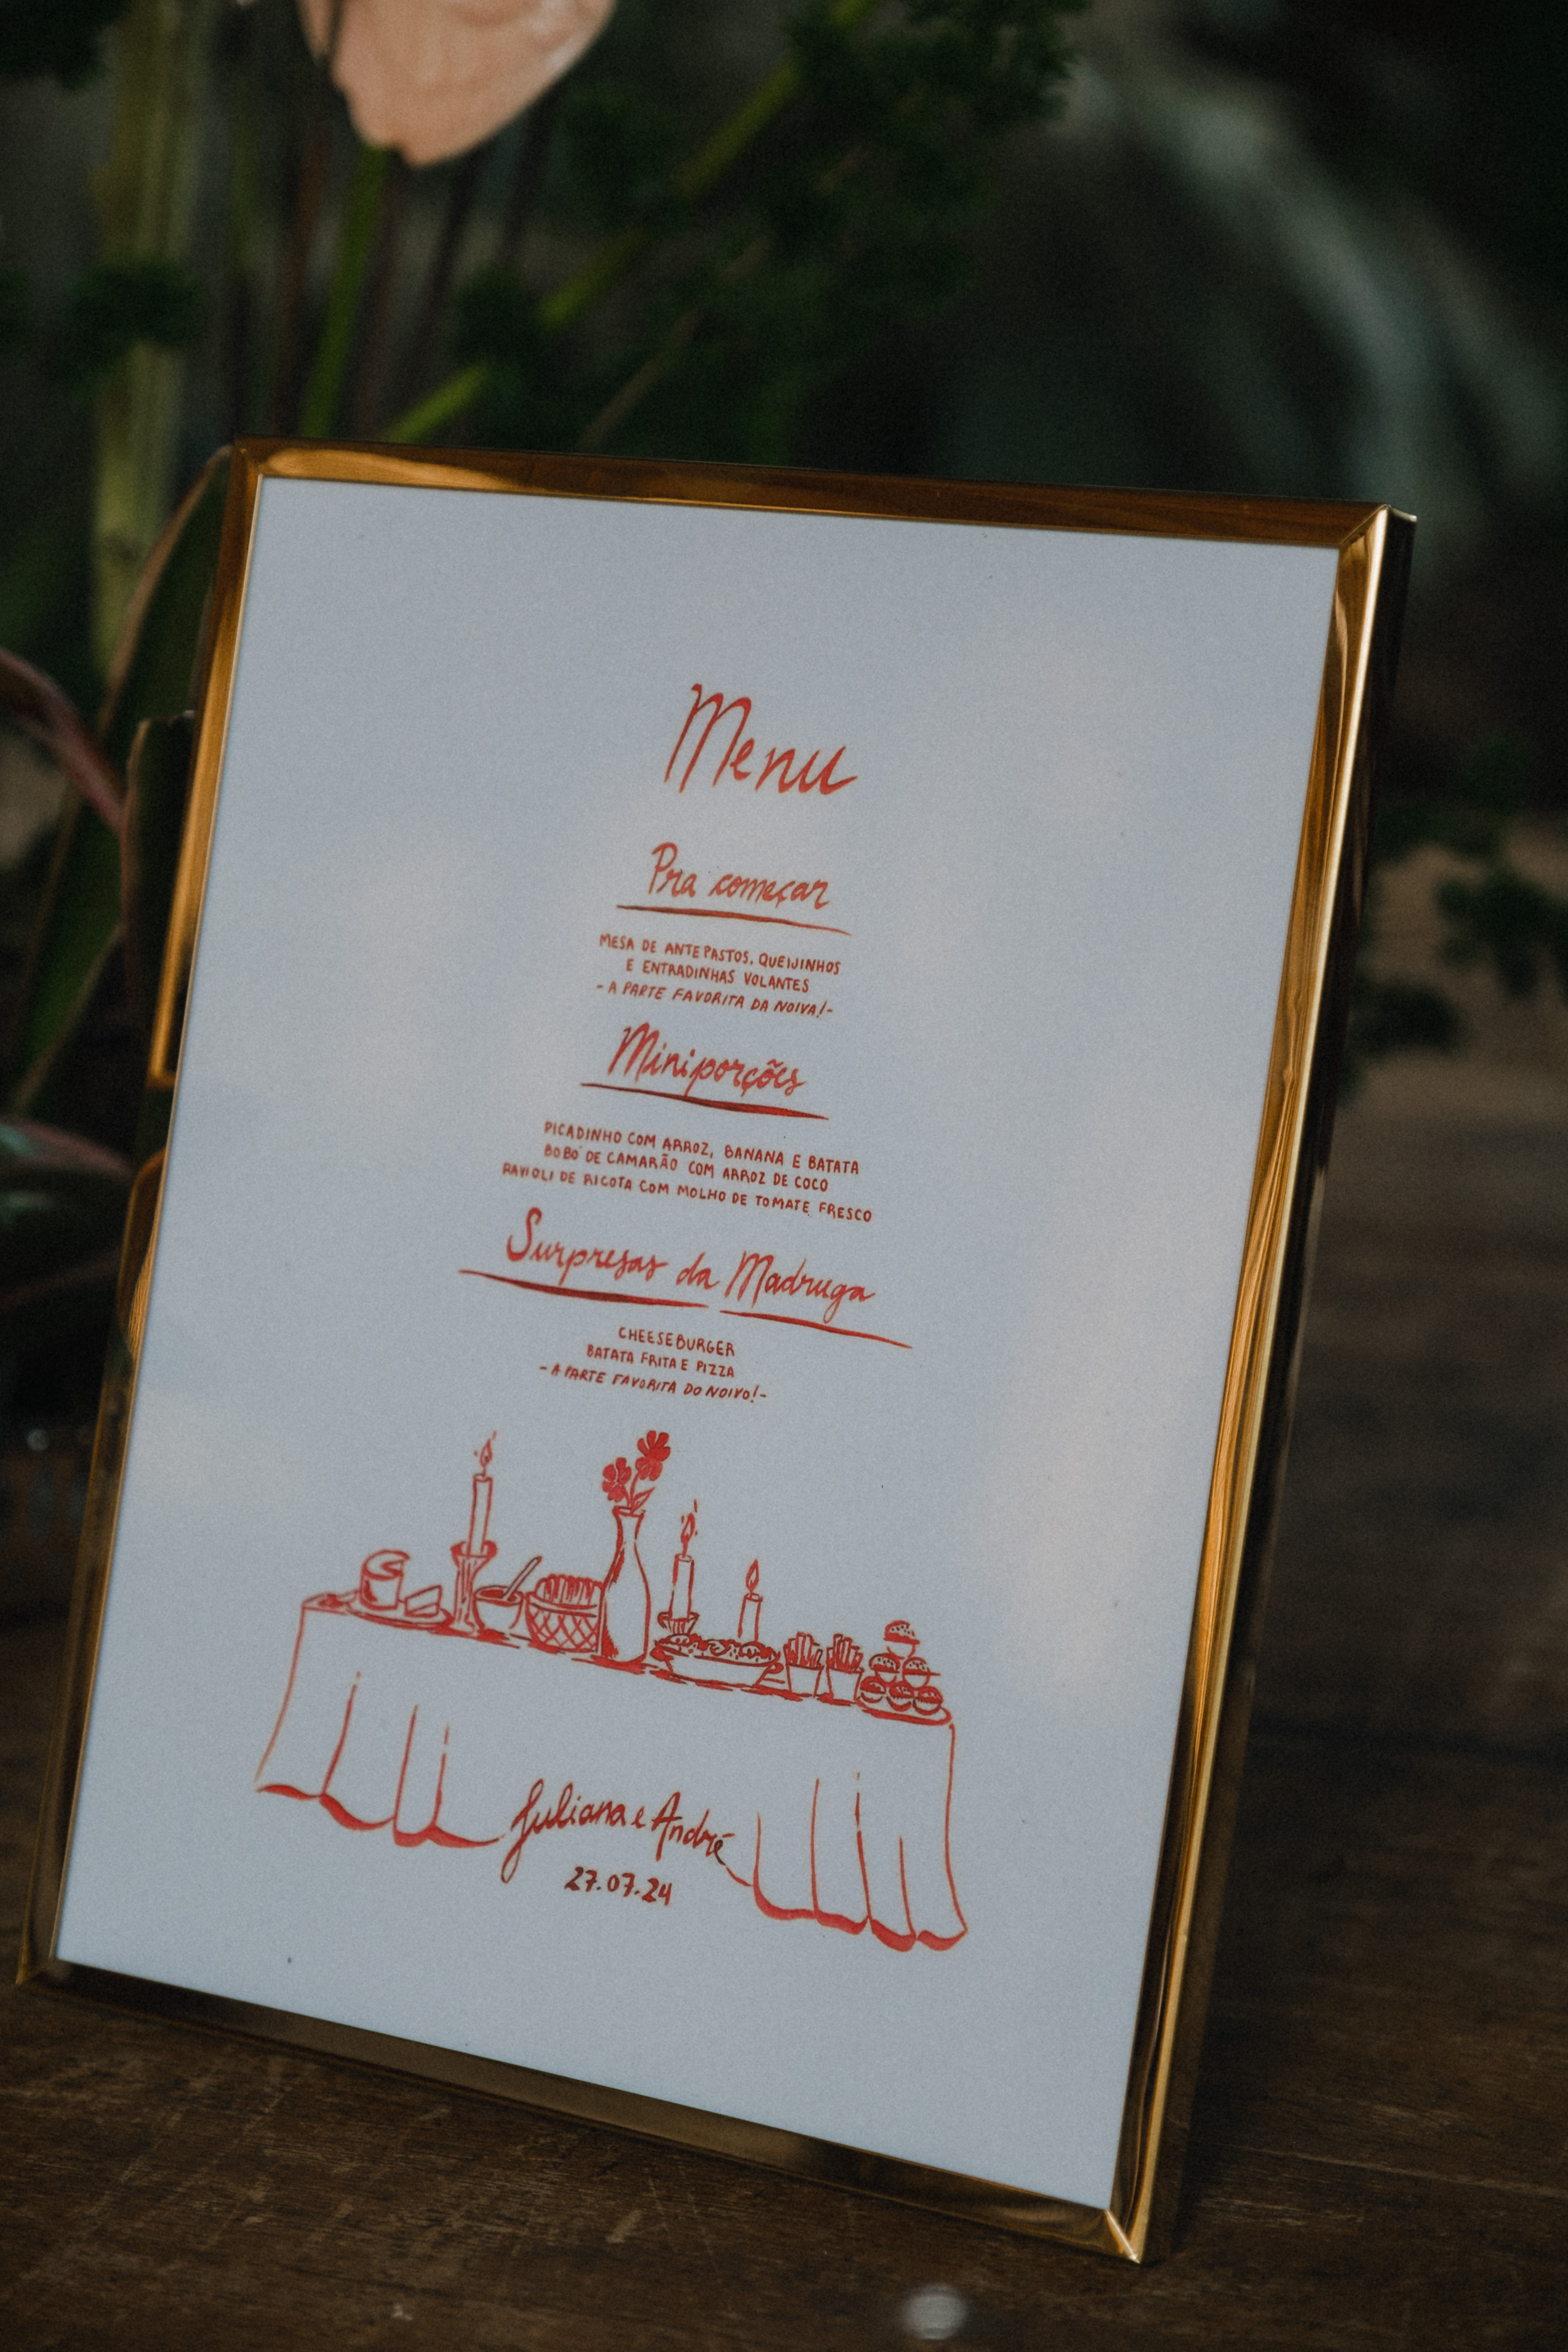 Menu
Pra começar
MESA DE ANTEPASTOS, QUEIJINHOS
E ENTRADINHAS VOLANTES
- A PARTE FAVORITA DA NOIVA! -
Miniporções
PICADINHO COM ARROZ, BANANA E BATATA
BOBÓ DE CAMARÃO COM ARROZ DE COCO
RAVIOLI DE RICOTA COM MOLHO DE TOMATE FRESCO
Surpresas da Madruga
CHEESEBURGER
BATATA FRITA E PIZZA
- A PARTE FAVORITA DO NOIVO! -
Juliana e André
27.07.24